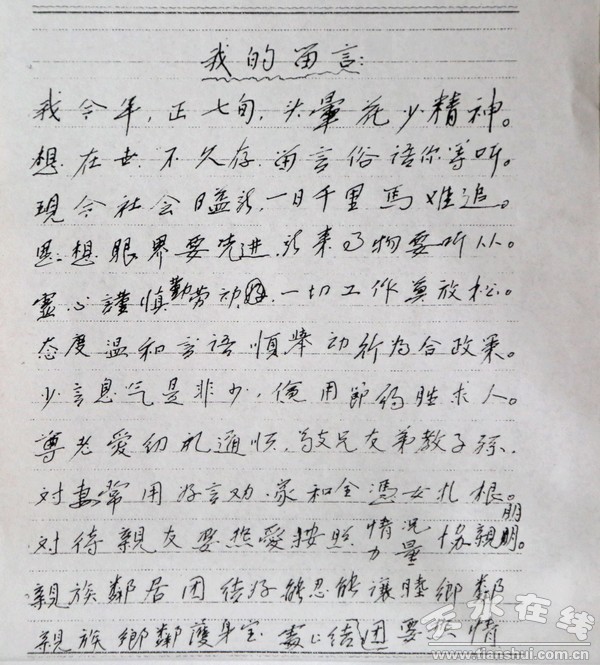 我的留言:
我今年,正七旬,头晕花少精神。
想在世不久存留言俗语你等听。
現今社会日益新,一日千里馬难追。
思想眼界要先进新来事物要听从。
虚心謹慎勤劳动好,一切工作莫放松。
态度温和言语順举动行为合政策。
少言息气是非少,儉用節约胜求人。
尊老愛幼礼通順,敬兄友弟教子孫,
对妻常用好言劝家和全憑女扎根。
对待親友要热愛按照情况力量协親朋。
親族鄰居团结好能忍能讓睦鄉鄰
親族鄉鄰護身宝 结团要热情
天水在线
www.tianshui.com.cn